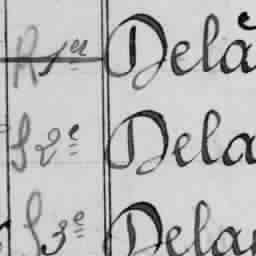 R 1re Dela
S 2e Dela
S 3e Dela